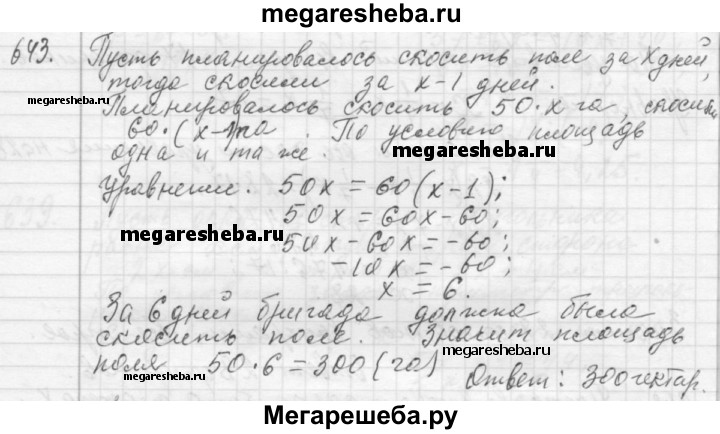 megaresheba.ru
643. Пусть планировалось скосить поле за х дней,
тогда скосили за х-1 дней.
megaresheba.ru
Планировалось скосить 50·х га, скосили
60·(х-1)га. По условию площадь
одна и та же.
megaresheba.ru
Уравнение. 50х=60(х-1);
50х=60х-60;
megaresheba.ru
50х-60х=-60;
-10х=-60;
х=6.
За 6 дней бригада должна была
скосить поле. Значит площадь
megaresheba.ru
поля 50·6=300(га)
megaresheba.ru
Ответ: 300гектар.
Мегарешеба.ру